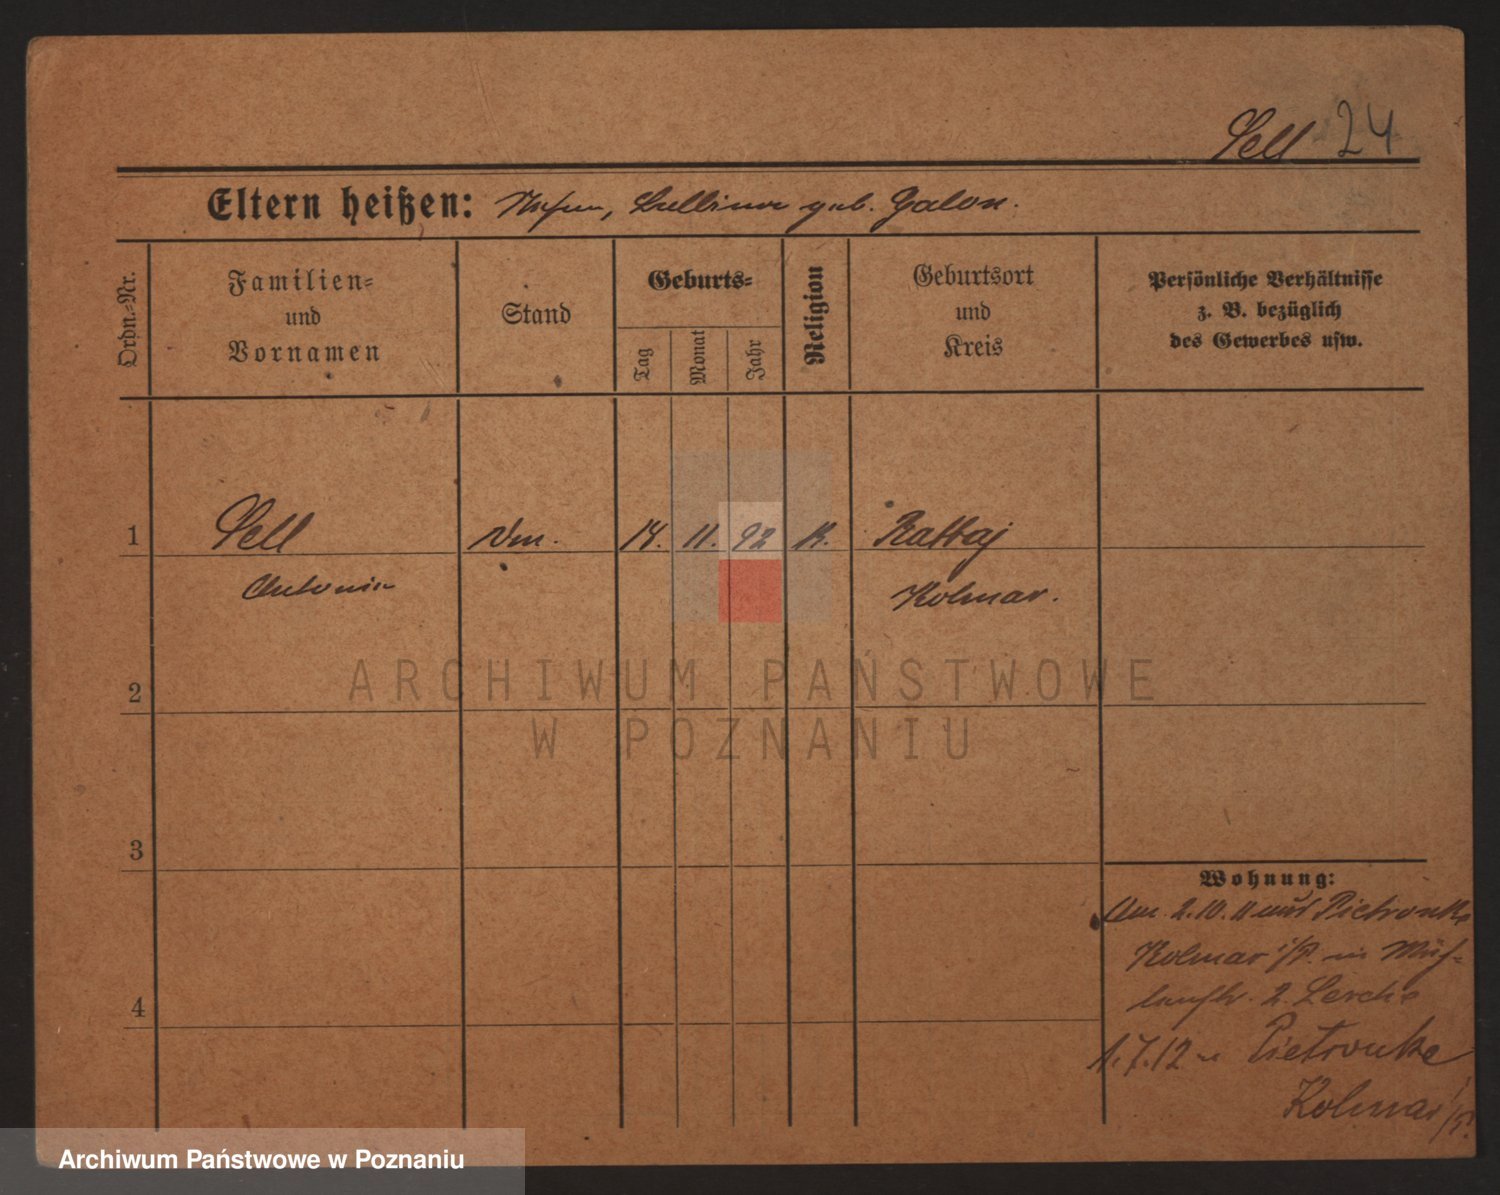 Sell 24
Eltern heißen: geb. Galon.
Ordn.-Nr.
Familien-
und
Vornamen
Stand
Geburts-
Tag
Monat
Jahr
Religion
Geburtsort
und
Kreis
Persönliche Verhältnisse
z. B. bezüglich
des Gewerbes usw.
1 Sell 14. 11. 92 K. Rattaj
Antonie Kolmar.
2
3
4
Wohnung:
2.10.11 aus Pietronke
Kolmar i/P. in Müh-
lenstr. 2. Lerche
1.7.12 n Pietronke
Kolmar i/P.
ARCHIWUM PAŃSTWOWE
W POZNANIU
Archiwum Państwowe w Poznaniu